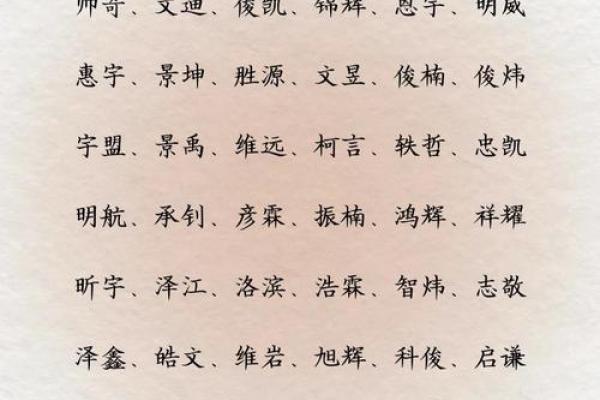 帅奇、文迪、俊凯、锦辉、恩宇、明威
惠宇、景坤、胜源、文昱、俊楠、俊炜
宇盟、景禹、维远、柯言、轶哲、忠凯
明航、承钊、彦霖、振楠、鸿辉、祥耀
昕宇、泽江、洛滨、浩霖、智炜、志敬
泽鑫、皓文、维岩、旭辉、科俊、启谦